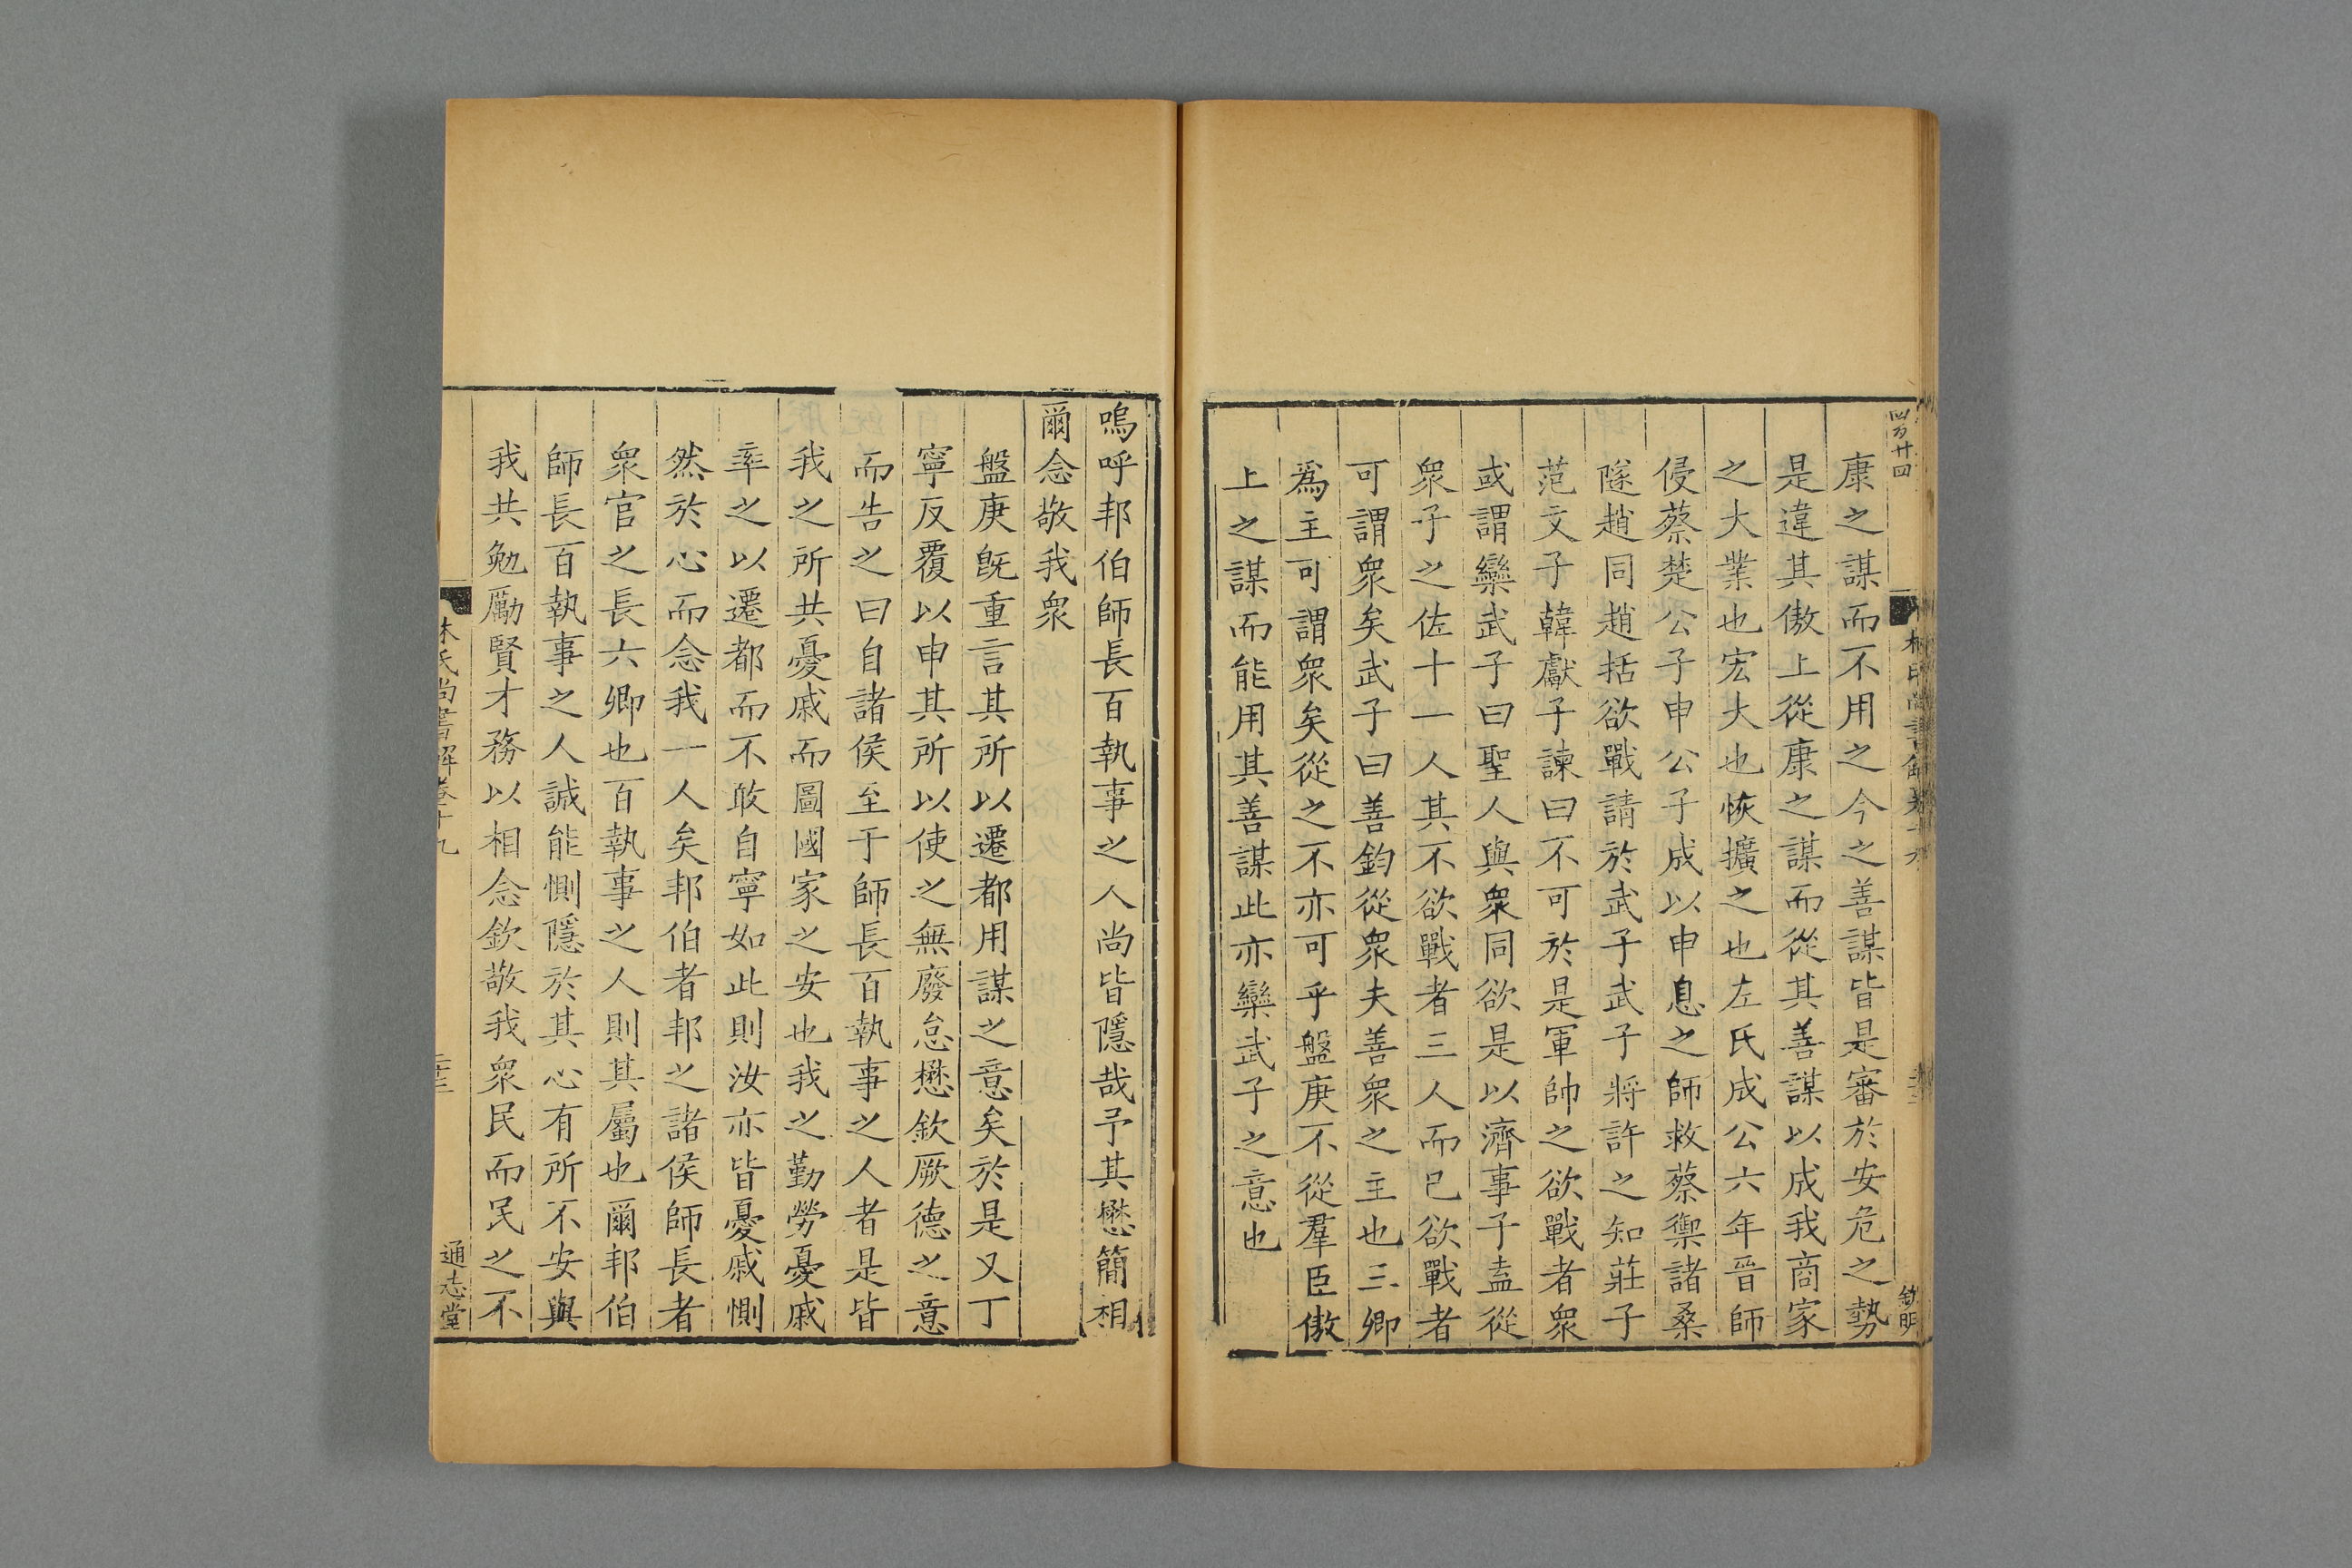 康之謀而不用之今之善謀皆是審於安危之勢
是違其傲上從康之謀而從其善謀以成我商家
之大業也宏大也恢擴之也左氏成公六年晉師
侵蔡楚公子申公子成以申息之師救蔡禦諸桑
隧趙同趙括欲戰請於武子武子將許之知莊子
范文子韓獻子諫曰不可於是軍帥之欲戰者衆
或謂欒武子曰聖人與衆同欲是以濟事子盍從
衆子之佐十一人其不欲戰者三人而已欲戰者
可謂衆矣武子曰善鈞從衆夫善衆之主也三卿
爲主可謂衆矣從之不亦可乎盤庚不從羣臣傲
上之謀而能用其善謀此亦欒武子之意也
嗚呼邦伯師長百執事之人尚皆隱哉予其懋簡相
爾念敬我衆
盤庚旣重言其所以遷都用謀之意矣於是又丁
寧反覆以申其所以使之無廢怠懋欽厥德之意
而告之曰自諸侯至于師長百執事之人者是皆
我之所共憂戚而圖國家之安也我之勤勞憂戚
率之以遷都而不敢自寧如此則汝亦皆憂戚惻
然於心而念我一人矣邦伯者邦之諸侯師長者
衆官之長六卿也百執事之人則其屬也爾邦伯
師長百執事之人誠能惻隱於其心有所不安與
我共勉勵賢才務以相念欽敬我衆民而民之不
林氏尚書解卷十九
通志堂